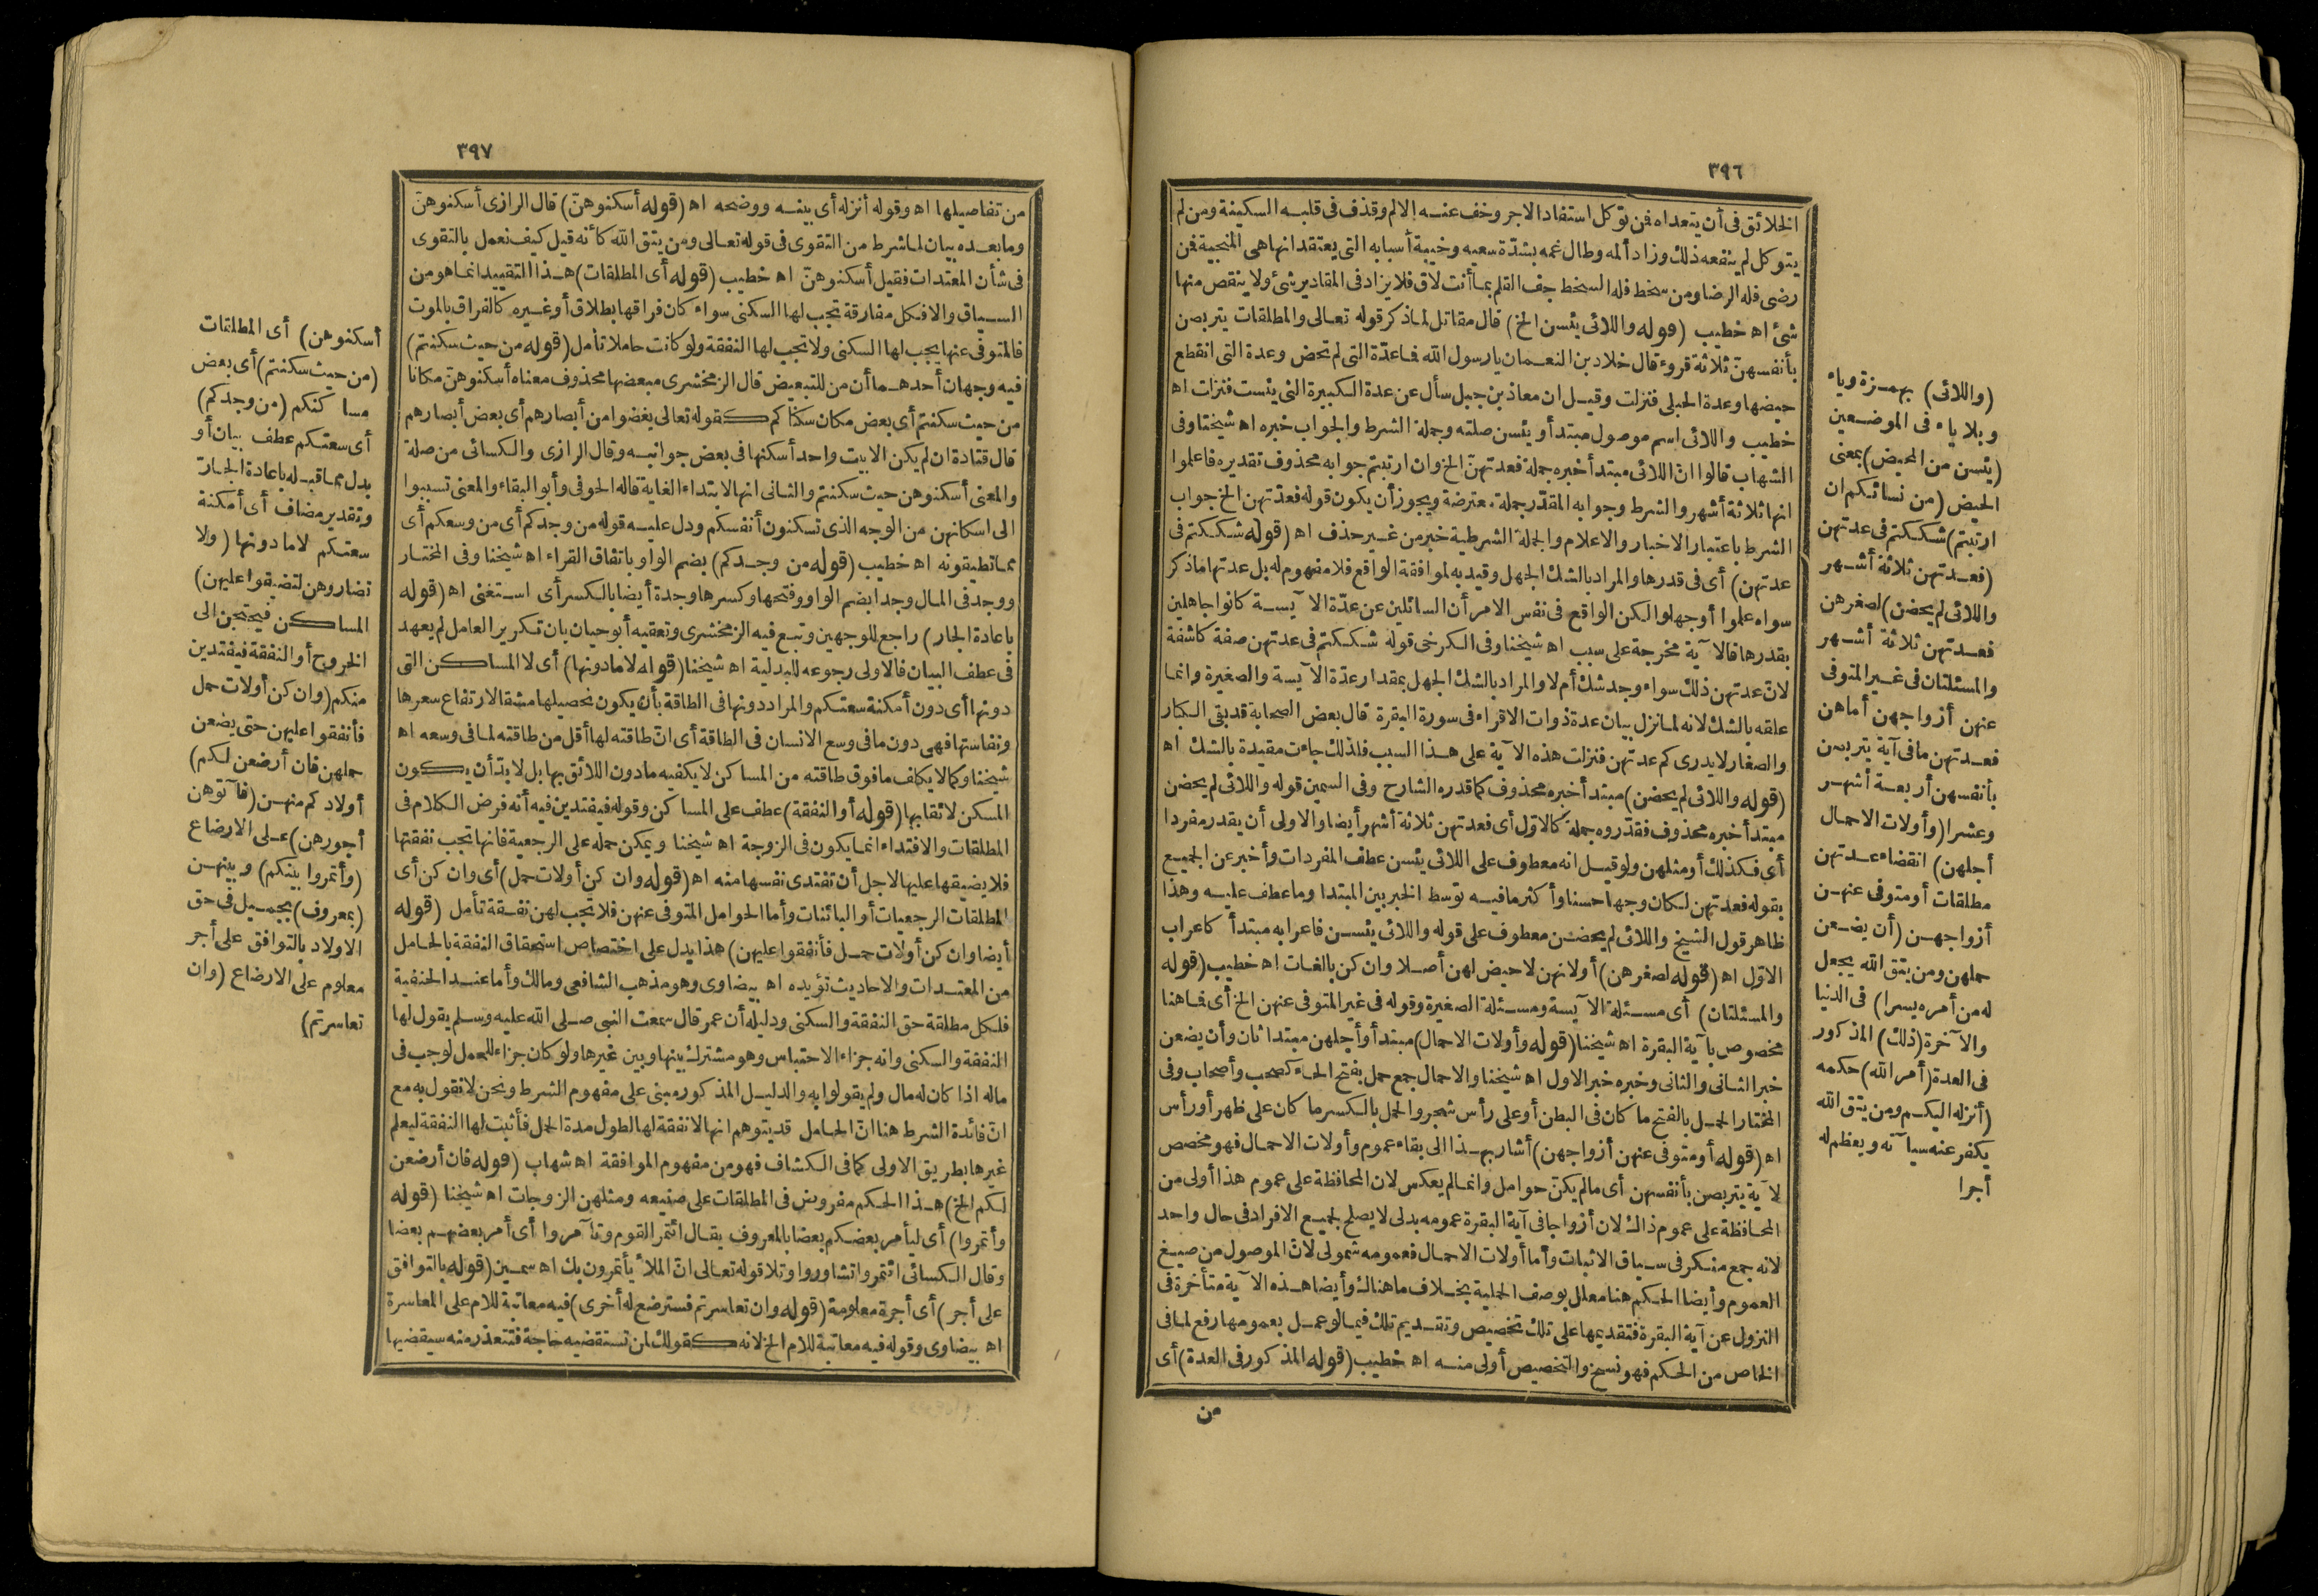 ٣٩٦
الخلائق فى أن يتعداه فمن توكل استفاد الاجر وخف عنه الالم وقذف فى قلبه السكينة ومن لم
يتوكل لم ينفعه ذلك وزاد ألمه وطال غمه بشدّة سعيه وخيبة أسبابه التى يعتقد انها هى المنجية فمن
رضى فله الرضا ومن سخط فله السخط جف القلم بما أنت لاق فلا يزاد فى المقادير شئ ولا ينقص منها
شئ اه خطيب (قوله واللائى يئسن الخ) قال مقاتل لما ذكر قوله تعالى والمطلقات يتربصن
بأنفسهنّ ثلاثة قروء قال خلاد بن النعمان يا رسول الله فما عدّة التى لم تحض وعدة التى انقطع
حيضها وعدة الحبلى فنزلت وقيل ان معاذ بن جبل سأل عن عدة الكبيرة التى يئست فنزلت اه
خطيب واللائى اسم موصول مبتدأ ويئسن صلته وجملة الشرط والجواب خبره اه شيخنا وفى
الشهاب قالوا انّ اللائى مبتدأ خبره جملة فعدتهنّ الخ وان ارتبتم جوابه محذوف تقديره فاعلموا
انها ثلاثة أشهر والشرط وجوابه المقدّر جملة معترضة ويجوز أن يكون قوله فعدّتهن الخ جواب
الشرط باعتبار الاخبار والاعلام والجملة الشرطية خبر من غير حذف اه (قوله شككتم فى
عدتهن) أى فى قدرها والمراد بالشك الجهل وقيد به لموافقة الواقع فلا مفهوم له بل عدتها ما ذكر
سواء علموا أو جهلوا لكن الواقع فى نفس الامر أن السائلين عن عدّة الآيسة كانوا جاهلين
بقدرها فالآية مخرجة على سبب اه شيخنا وفى الكرخى قوله شككتم فى عدتهن صفة كاشفة
لانّ عدتهن ذلك سواء وجد شك أم لا والمراد بالشك الجهل بمقدار عدّة الآيسة والصغيرة وانما
علقه بالشك لانه لما نزل بيان عدة ذوات الاقراء فى سورة البقرة قال بعض الصحابة قد بقى الكبار
والصغار لا يدرى كم عدتهن فنزلت هذه الآية على هذا السبب فلذلك جاءت مقيدة بالشك اه
(قوله واللائى لم يحضن) مبتدأ خبره محذوف كما قدره الشارح وفى السمين قوله واللائى لم يحضن
مبتدأ خبره محذوف فقدّروه جملة كالاوّل أى فعدتهن ثلاثة أشهر أيضا والاولى أن يقدر مفردا
أى فكذلك أو مثلهن ولو قيل انه معطوف على اللائى يئسن عطف المفردات وأخبر عن الجميع
بقوله فعدتهن لكان وجها حسنا وأكثر ما فيه توسط الخبر بين المبتدا وما عطف عليه وهذا
ظاهر قول الشيخ واللائى لم يحضن معطوف على قوله واللائى يئسن فاعرابه مبتدأ كاعراب
الاوّل اه (قوله لصغرهن) أو لانهن لا حيض لهن أصلا وان كن بالغات اه خطيب (قوله
والمسئلتان) أى مسئلة الآيسة ومسئلة الصغيرة وقوله فى غير المتوفى عنهن الخ أى فما هنا
مخصوص بآية البقرة اه شيخنا (قوله وأولات الاحمال) مبتدأ وأجلهن مبتدا ثان وأن يضعن
خبر الثانى والثانى وخبره خبر الاول اه شيخنا والاحمال جمع حمل بفتح الحاء كصحب وأصحاب وفى
المختار الحمل بالفتح ما كان فى البطن أو على رأس شجر والحمل بالكسر ما كان على ظهر أو رأس
اه (قوله أو متوفى عنهن أزواجهن) أشار بهذا الى بقاء عموم وأولات الاحمال فهو مخصص
لآية يتربصن بأنفسهن أى ما لم يكنّ حوامل وانما لم يعكس لان المحافظة على عموم هذا أولى من
المحافظة على عموم ذاك لان أزواجا فى آية البقرة عمومه بدلى لا يصلح لجميع الافراد فى حال واحد
لانه جمع منكر فى سياق الاثبات وأما أولات الاحمال فعمومه شمولى لانّ الموصول من صيغ
العموم وأيضا الحكم هنا معلل بوصف الحملية بخلاف ما هناك وأيضا هذه الآية متأخرة فى
النزول عن آية البقرة فتقديمها على تلك تخصيص وتقديم تلك فيما لو عمل بعمومها رفع لما فى
الخاص من الحكم فهو نسخ والتخصيص أولى منه اه خطيب (قوله المذكور فى العدة) أى
من
(واللائى) بهمزة وياء
وبلا ياء فى الموضعين
(يئسن من المحيض) بمعنى
الحيض (من نسائكم ان
ارتبتم) شككتم فى عدتهن
(فعدتهن ثلاثة أشهر
واللائى لم يحضن) لصغرهن
فعدتهن ثلاثة أشهر
والمسئلتان فى غير المتوفى
عنهن أزواجهن أما هن
فعدتهن ما فى آية يتربصن
بأنفسهن أربعة أشهر
وعشرا (وأولات الاحمال
أجلهن) انقضاء عدتهن
مطلقات أو متوفى عنهن
أزواجهن (أن يضعن
حملهن ومن يتق الله يجعل
له من أمره يسرا) فى الدنيا
والآخرة (ذلك) المذكور
فى العدة (أمر الله) حكمه
(أنزله اليكم ومن يتق الله
يكفر عنه سيآته ويعظم له
أجرا
٣٩٧
من تفاصيلها اه وقوله أنزله أى بينه ووضحه اه (قوله أسكنوهنّ) قال الرازى أسكنوهنّ
وما بعده بيان لما شرط من التقوى فى قوله تعالى ومن يتق الله كأنه قيل كيف نعمل بالتقوى
فى شأن المعتدات فقيل أسكنوهنّ اه خطيب (قوله أى المطلقات) هذا التقييد انما هو من
السياق والا فكل مفارقة تجب لها السكنى سواء كان فراقها بطلاق أو غيره كالفراق بالموت
فالمتوفى عنها يجب لها السكنى ولا تجب لها النفقة ولو كانت حاملا تأمل (قوله من حيث سكنتم)
فيه وجهان أحدهما أن من للتبعيض قال الزمخشرى مبعضها محذوف معناه أسكنوهنّ مكانا
من حيث سكنتم أى بعض مكان سكناكم كقوله تعالى يغضوا من أبصارهم أى بعض أبصارهم
قال قتادة ان لم يكن الا بيت واحد أسكنها فى بعض جوانبه وقال الرازى والكسائى من صلة
والمعنى أسكنوهن حيث سكنتم والثانى انها لابتداء الغاية قاله الحوفى وأبو البقاء والمعنى تسببوا
الى اسكانهن من الوجه الذى تسكنون أنفسكم ودل عليه قوله من وجدكم أى من وسعكم أى
مما تطيقونه اه خطيب (قوله من وجدكم) بضم الواو باتفاق القراء اه شيخنا وفى المختار
ووجد فى المال وجدا بضم الواو وفتحها وكسرها وجدة أيضا بالكسر أى استغنى اه (قوله
باعادة الجار) راجع للوجهين وتبع فيه الزمخشرى وتعقبه أبو حيان بان تكرير العامل لم يعهد
فى عطف البيان فالاولى رجوعه للبدلية اه شيخنا (قوله لا ما دونها) أى لا المساكن التى
دونها أى دون أمكنة سعتكم والمراد دونها فى الطاقة بأن يكون تحصيلها مشقا لارتفاع سعرها
ونفاستها فهى دون ما فى وسع الانسان فى الطاقة أى انّ طاقته لها أقل من طاقته لما فى وسعه اه
شيخنا وكما لا يكلف ما فوق طاقته من المساكن لا يكفيه ما دون اللائق بها بل لا بدّ أن يكون
المسكن لائقا بها (قوله أو النفقة) عطف على المساكن وقوله فيفتدين فيه أنه فرض الكلام فى
المطلقات والافتداء انما يكون فى الزوجة اه شيخنا ويمكن حمله على الرجعية فانها تجب نفقتها
فلا يضيقها عليها لاجل أن تفتدى نفسها منه اه (قوله وان كن أولات حمل) أى وان كن أى
المطلقات الرجعيات أو البائنات وأما الحوامل المتوفى عنهن فلا تجب لهن نفقة تأمل (قوله
أيضا وان كن أولات حمل فأنفقوا عليهن) هذا يدل على اختصاص استحقاق النفقة بالحامل
من المعتدات والاحاديث تؤيده اه بيضاوى وهو مذهب الشافعى ومالك وأما عند الحنفية
فلكل مطلقة حق النفقة والسكنى ودليله أن عمر قال سمعت النبى صلى الله عليه وسلم يقول لها
النفقة والسكنى وانه جزاء الاحتباس وهو مشترك بينها وبين غيرها ولو كان جزاء للحمل لوجب فى
ماله اذا كان له مال ولم يقولوا به والدليل المذكور مبنى على مفهوم الشرط ونحن لا نقول به مع
انّ فائدة الشرط هنا انّ الحامل قد يتوهم انها لا نفقة لها لطول مدة الحمل فأثبت لها النفقة ليعلم
غيرها بطريق الاولى كما فى الكشاف فهو من مفهوم الموافقة اه شهاب (قوله فان أرضعن
لكم الخ) هذا الحكم مفروض فى المطلقات على صنيعه ومثلهن الزوجات اه شيخنا (قوله
وأتمروا) أى ليأمر بعضكم بعضا بالمعروف يقال ائتمر القوم وتآمروا أى أمر بعضهم بعضا
وقال الكسائى ائتمروا تشاوروا وتلا قوله تعالى انّ الملأ يأتمرون بك اه سمين (قوله بالتوافق
على أجر) أى أجرة معلومة (قوله وان تعاسرتم فسترضع له أخرى) فيه معاتبة للام على المعاسرة
اه بيضاوى وقوله فيه معاتبة للام الخ لانه كقولك لمن تستقضيه حاجة فتتعذر منه سيقضيها
أسكنوهن) أى المطلقات
(من حيث سكنتم) أى بعض
مساكنكم (من وجدكم)
أى سعتكم عطف بيان أو
بدل مما قبله باعادة الجارّ
وتقدير مضاف أى أمكنة
سعتكم لا ما دونها (ولا
تضاروهن لتضيقوا عليهن)
المساكن فيحتجن الى
الخروج أو النفقة فيفتدين
منكم (وان كن أولات حمل
فأنفقوا عليهن حتى يضعن
حملهن فان أرضعن لكم)
أولادكم منهن (فآتوهن
أجورهن) على الارضاع
(وأتمروا بينكم) وبينهن
(بمعروف) بجميل فى حق
الاولاد بالتوافق على أجر
معلوم على الارضاع (وان
تعاسرتم)